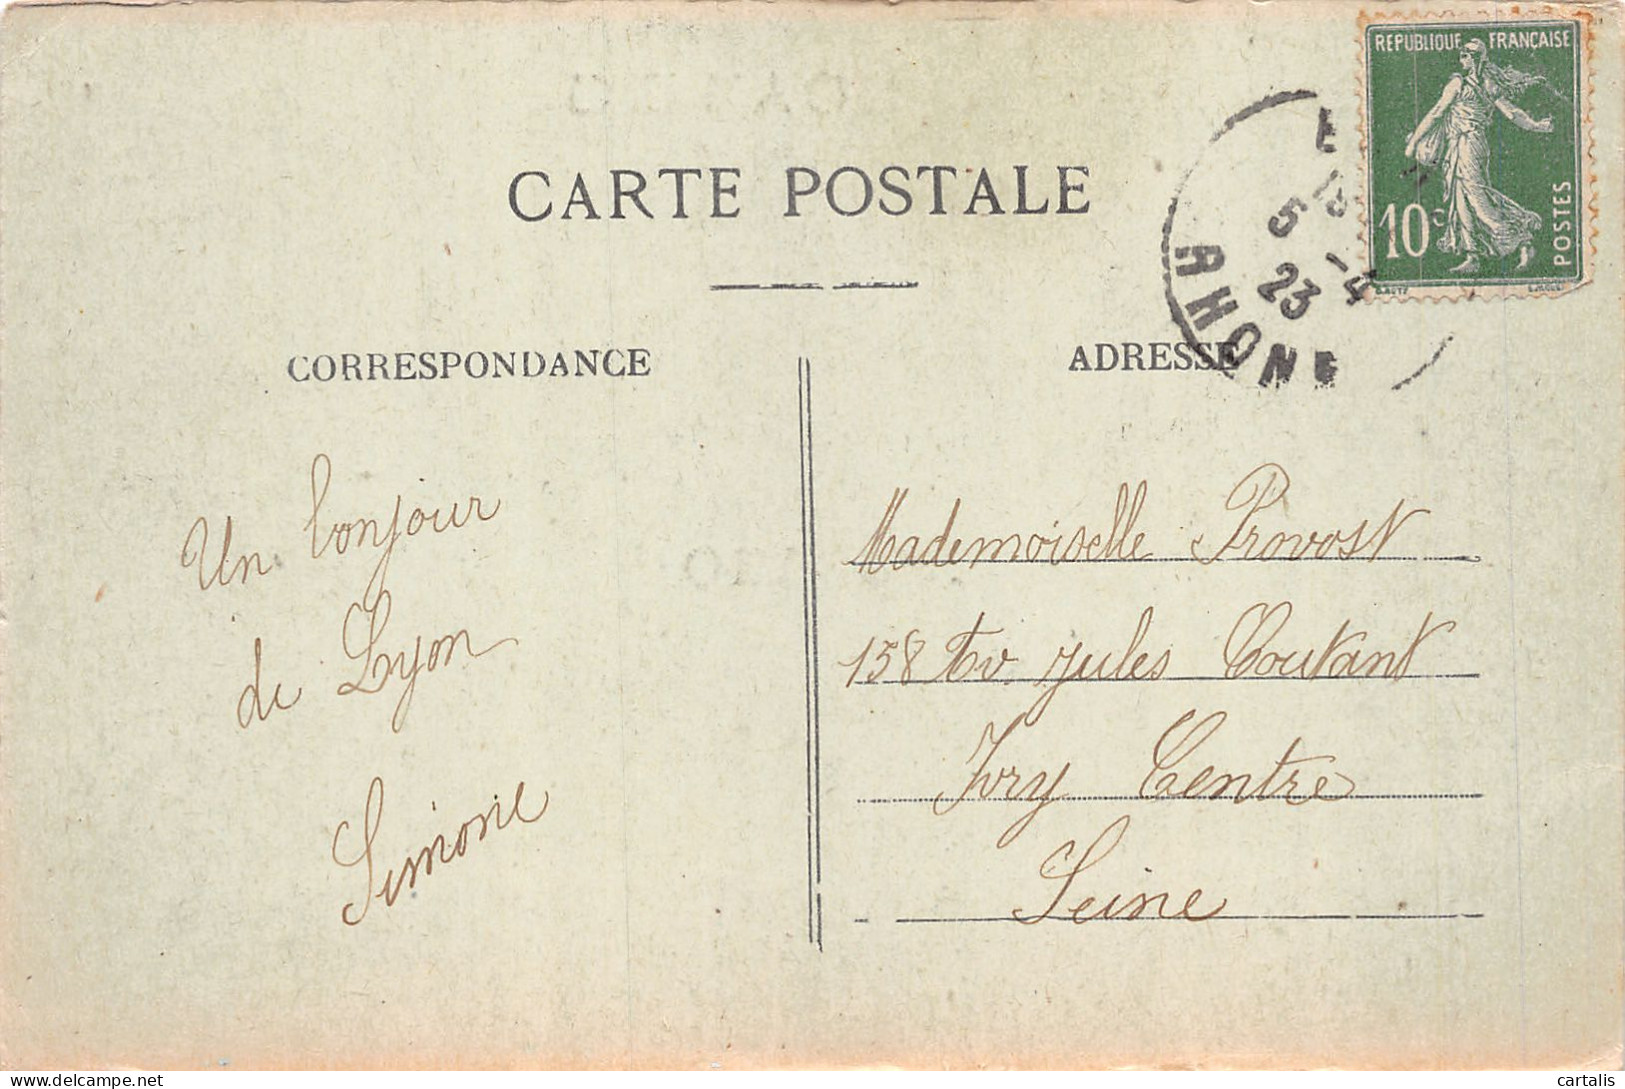 REPUBLIQUE FRANÇAISE
10c
POSTES
5 -4
23
RHONE
CARTE POSTALE
CORRESPONDANCE
ADRESSE
Un bonjour
de Lyon
Simone
Mademoiselle Provost
158 Av. Jules Coutant
Ivry Centre
Seine
delcampe.net
cartalis